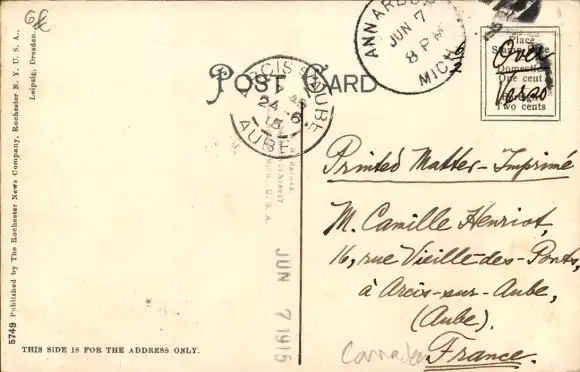 6
5749 Published by The Rochester News Company, Rochester N. Y. U. S. A.,
Leipzig, Dresden.
POST CARD
ANN ARBOR
JUN 7
8 PM
MICH
ARCIS S/ AUBE
24 6
15
AUBE
Place
Stamp Here
Domestic
One cent
Two cents
Over
Verso
Printed Matter - Imprimé
M. Camille Henriot,
16, rue Vieille-des-Ponts,
à Arcis-sur-Aube,
(Aube).
France.
STREET
U. S. A.
JUN 7 1915
THIS SIDE IS FOR THE ADDRESS ONLY.